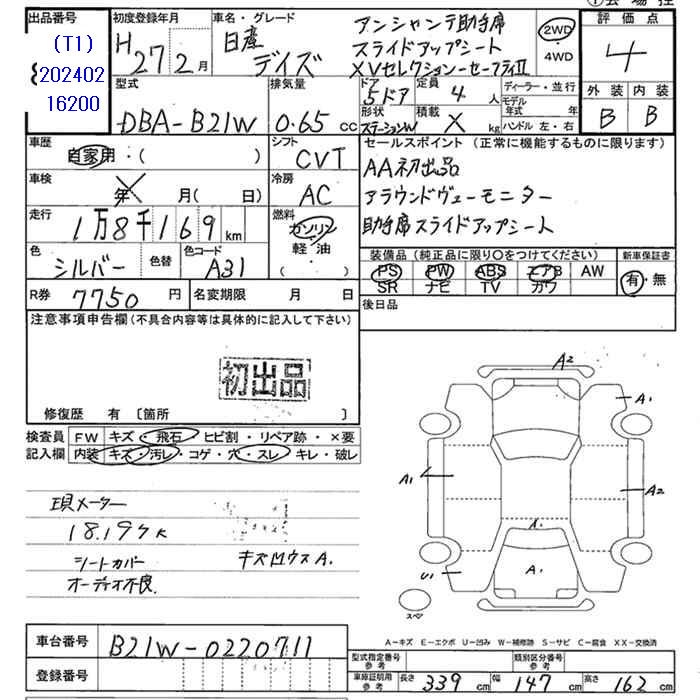 ①会場控
出品番号
(T1)
202402
16200
初度登録年月
H27年2月
車名・グレード
日産
デイズ
アンシャンテ助手席
スライドアップシート
XVセレクションーセーフティⅡ
2WD
・
4WD
評価点
4
外装 内装
B B
型式
DBA-B21W
排気量
0.65 cc
ドア
5ドア
定員
4 人
ディーラー・並行
モデル
年式 年
形状
ステーションW
積載
X kg
ハンドル 左・右
車歴
自家用・( )
シフト
CVT
セールスポイント (正常に機能するものに限ります)
AA初出品
アラウンドヴューモニター
助手席スライドアップシート
車検
年 月( 日)
冷房
AC
走行
1万8千169 km
燃料
ガソリン
軽・油
( ・ )
色
シルバー
色替
色コード
A31
装備品 (純正品に限り〇をつけてください)
新車保証書
PS PW ABS エアB AW
SR ナビ TV カワ
有・無
R券 7750 円
名変期限 月 日
後日品
注意事項申告欄(不具合内容等は具体的に記入して下さい)
初出品
修復歴 有 〔箇所 〕
検査員
記入欄
FW キズ・飛石・ヒビ割・リペア跡・×要
内装 キズ・汚レ・コゲ・穴・スレ・キレ・破レ
現メーター
18.197K
シートカバー
キズ凹ウスA.
オーディオ不良
A2
A1
A1
A2
A.
A.
U1
スペア
A-キズ E-エクボ U-凹み W-補修跡 S-サビ C-腐食 XX-交換済
車台番号
B21W-0220711
登録番号
型式指定番号
参考
類別区分番号
参考
車庫証明用
参考
長さ 339 cm 幅 147 cm 高さ 162 cm